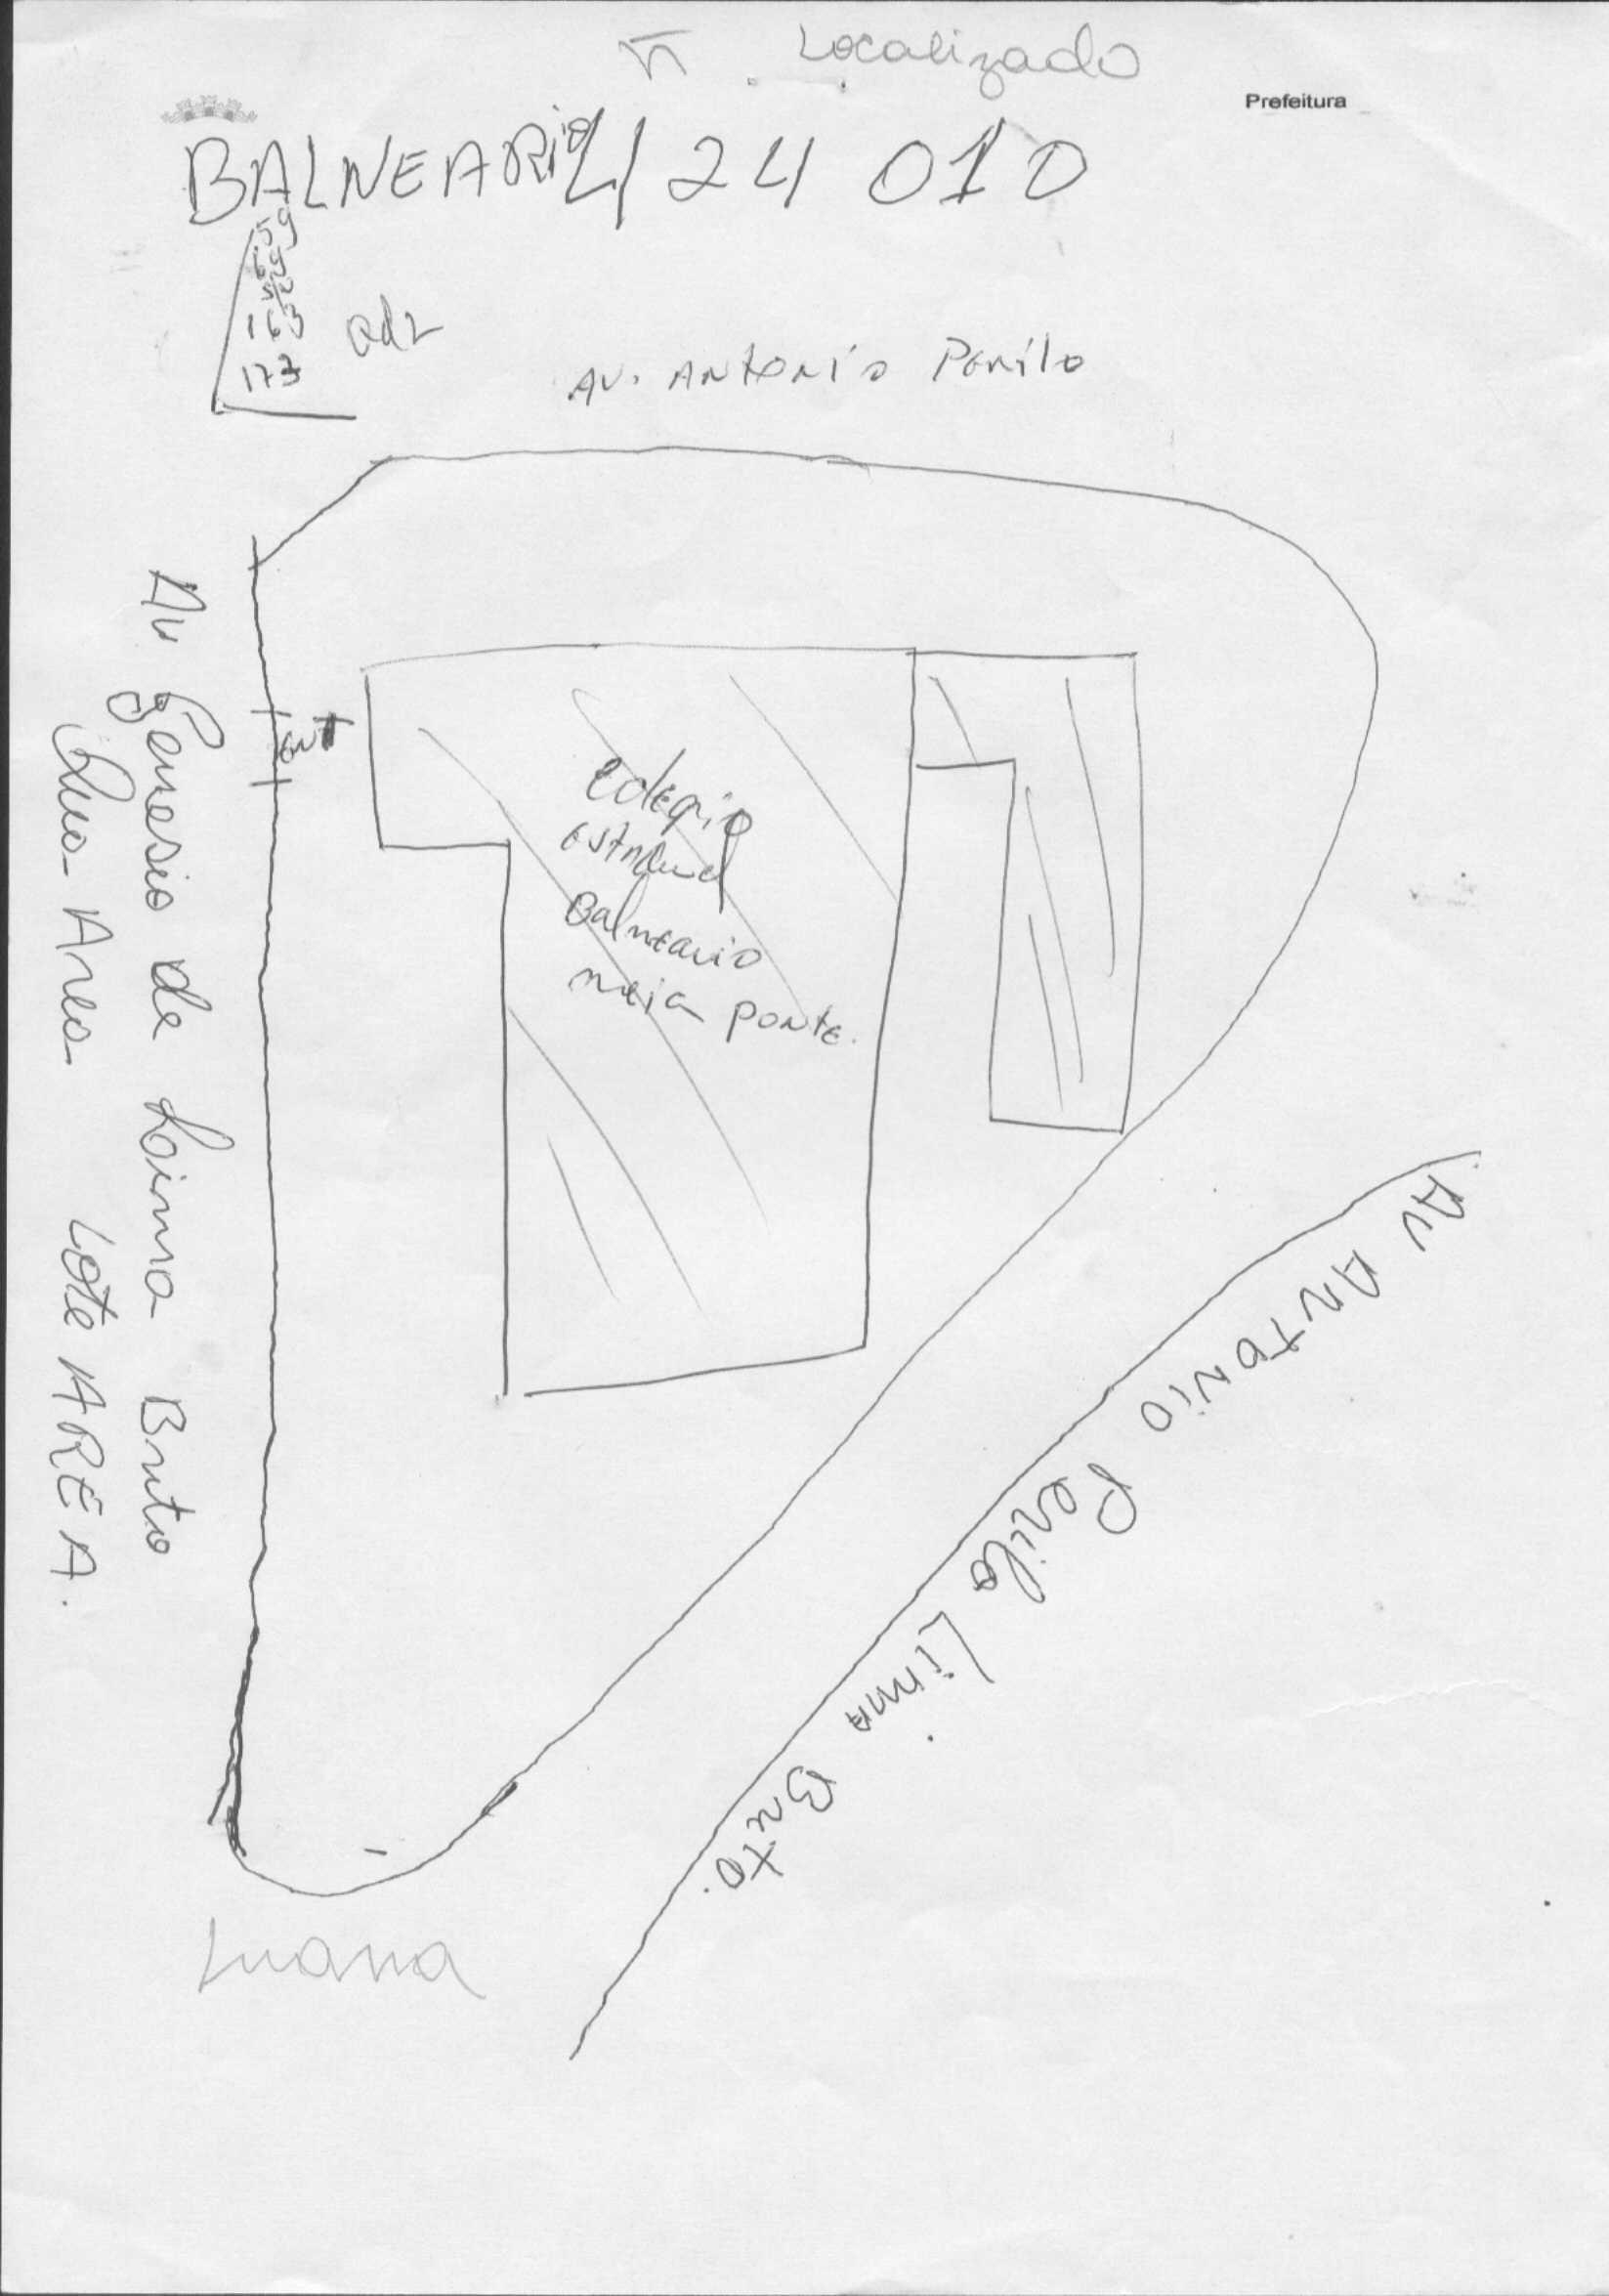 Localizado
Prefeitura
BALNEARio 124 010
163
173
Qd2
AV. ANTONIO PERILO
ENT
COLEGIO
ESTADUAL
BALNEARIO
meia PONTE.
Av Genesio de Lima Brito
Qua- Area- Lote AREA.
Av ANTONIO Perilo LIMA Brito.
Luana